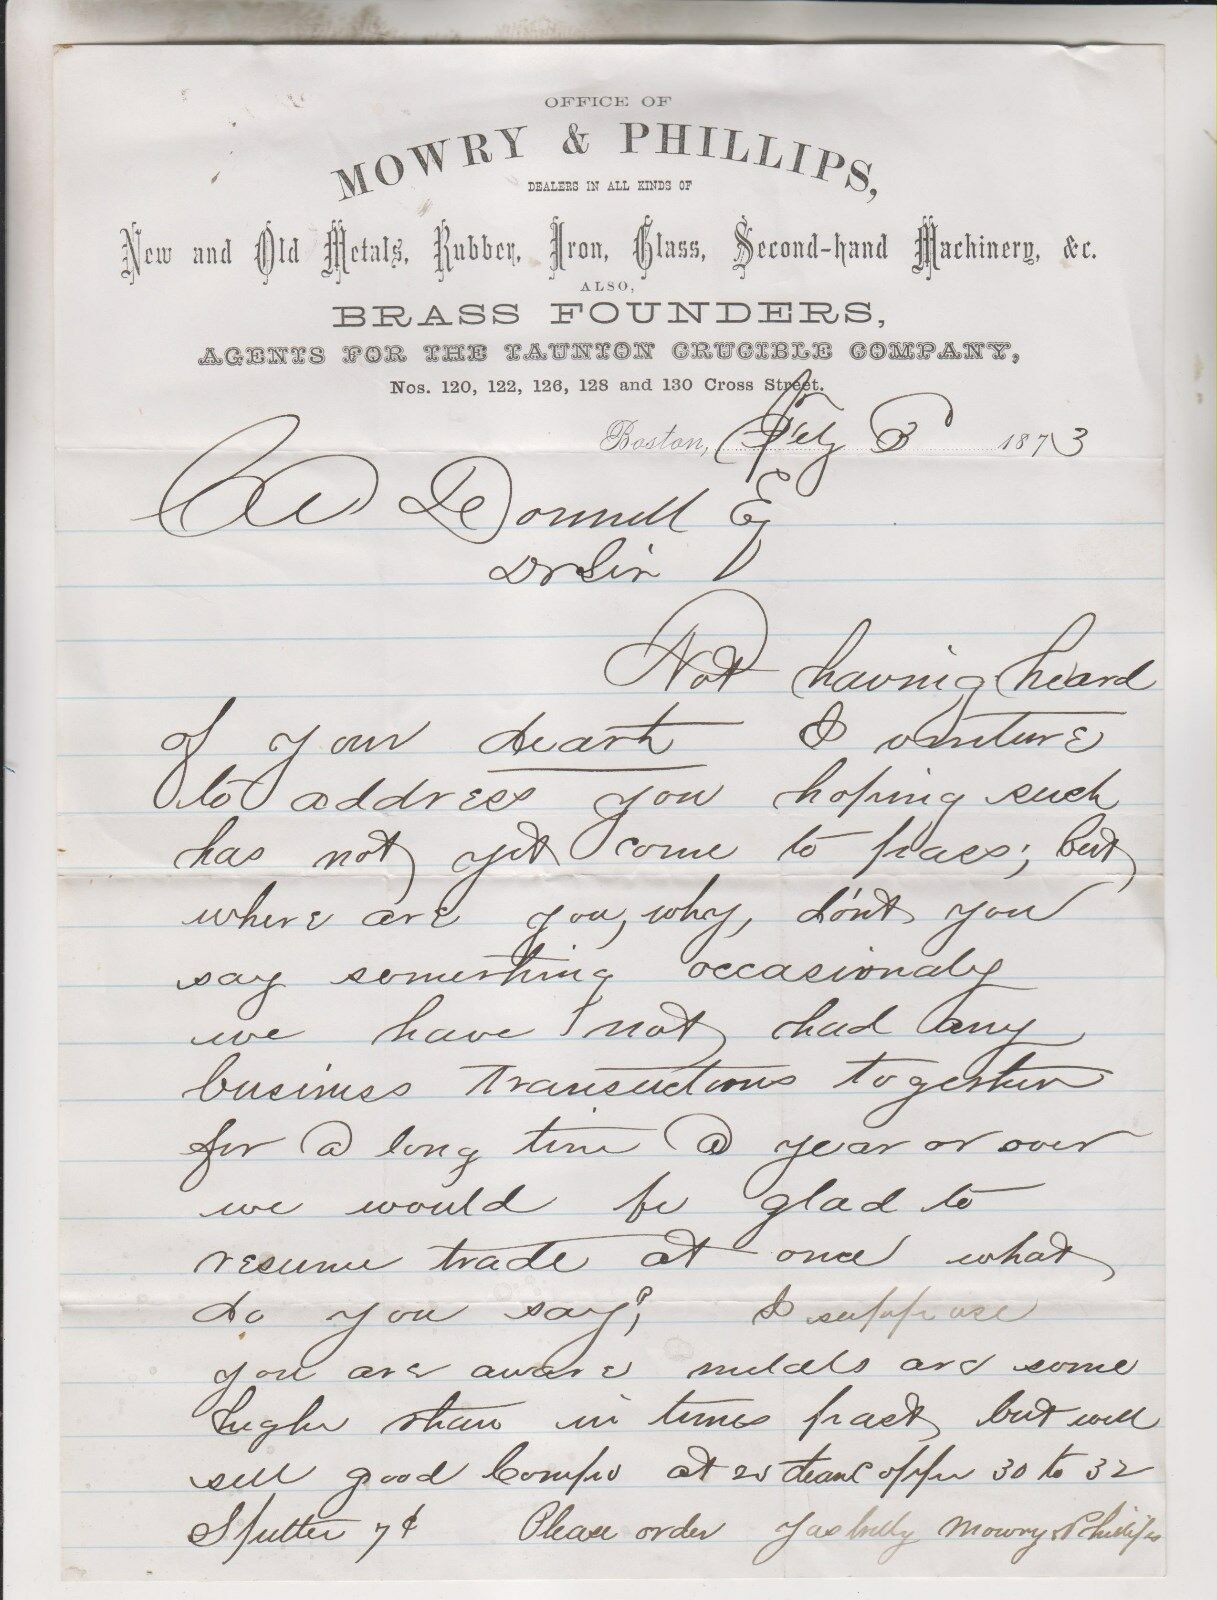 OFFICE OF
MOWRY & PHILLIPS,
DEALERS IN ALL KINDS OF
New and Old Metals, Rubber, Iron, Glass, Second-hand Machinery, &c.
ALSO,
BRASS FOUNDERS,
AGENTS FOR THE TAUNTON CRUCIBLE COMPANY,
Nos. 120, 122, 126, 128 and 130 Cross Street.
Boston, Feby 3 1873
Donnell Esq
Dr Sir
Not having heard
of your death I venture
to address you hoping such
has not yet come to pass; but
where are you, why, don't you
say something occasionaly
we have not had any
business transactions together
for a long time a year or over
we would be glad to
resume trade at once what
do you say? I suppose
you are aware metals are some
higher than in times past, but will
sell good Compo at 25 clean Copper 30 to 32
Spelter 7¢ Please order Mowry & Phillips